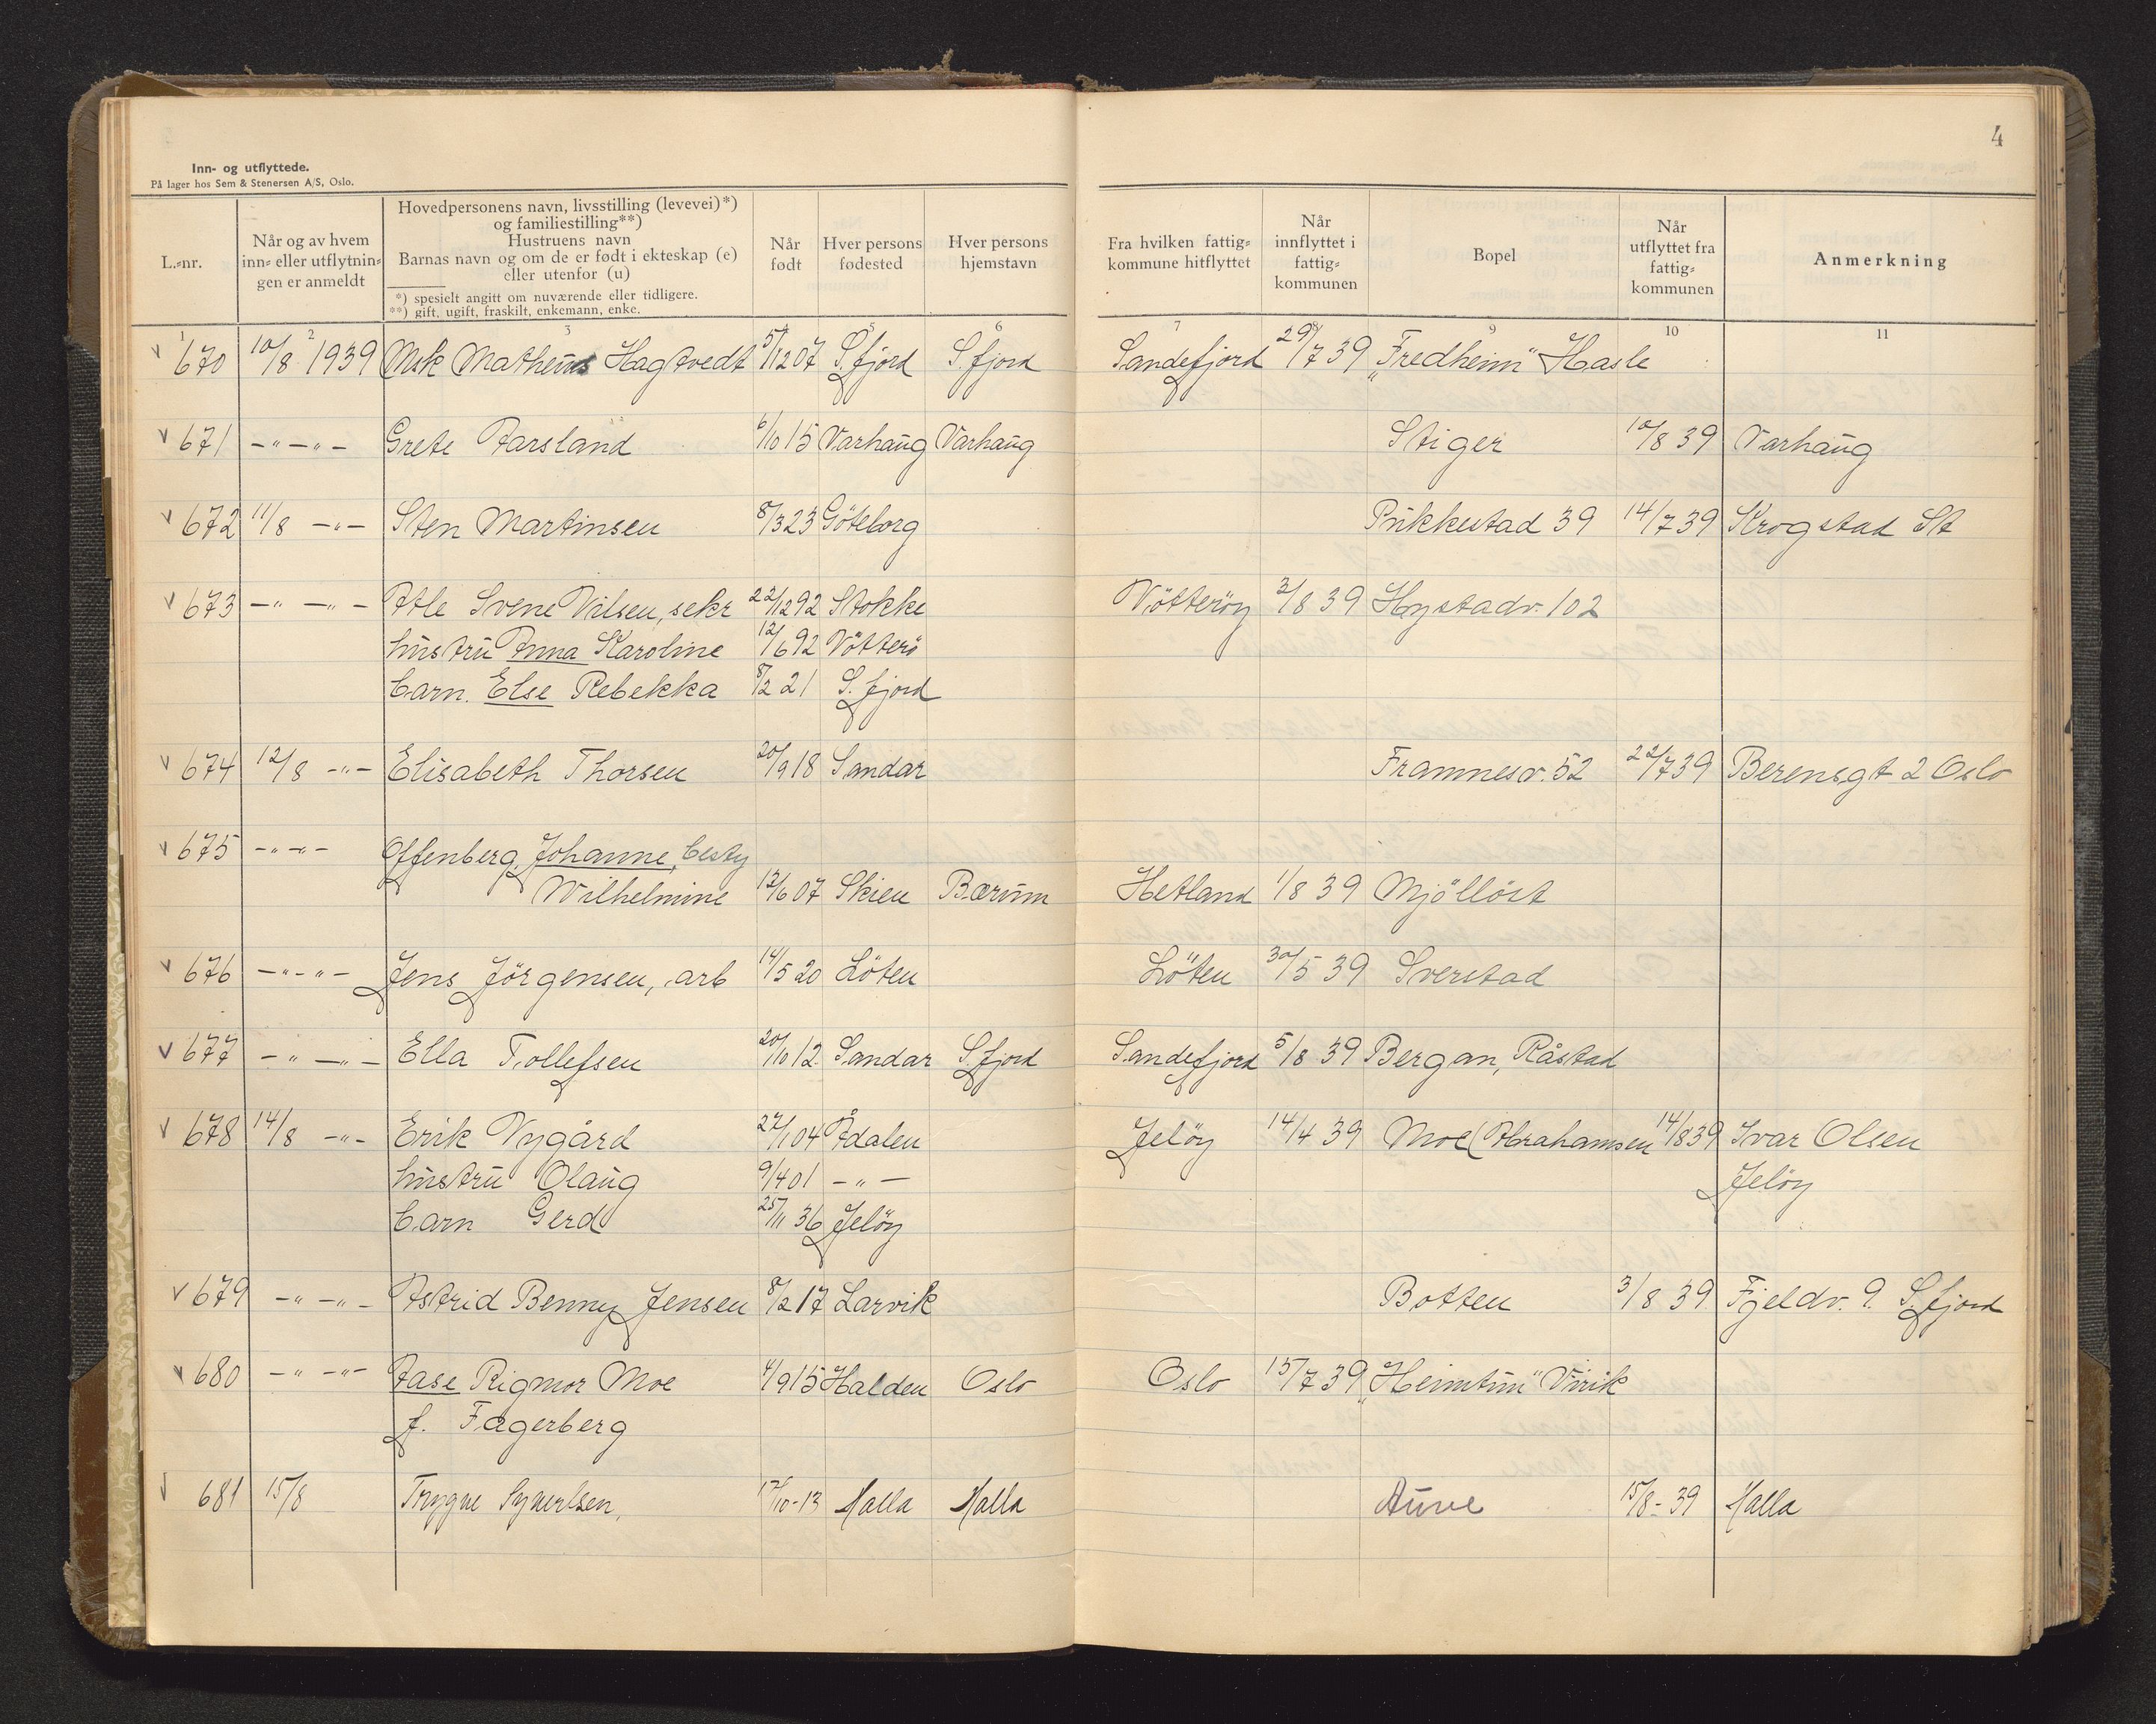 4
Inn- og utflyttede.
På lager hos Sem & Stenersen A/S, Oslo.
L.-nr.
Når og av hvem inn- eller utflytnin- gen er anmeldt
Hovedpersonens navn, livsstilling (levevei)*)
og familiestilling**)
Hustruens navn
Barnas navn og om de er født i ekteskap (e)
eller utenfor (u)
*) spesielt angitt om nuværende eller tidligere.
**) gift, ugift, fraskilt, enkemann, enke.
Når født
Hver persons fødested
Hver persons hjemstavn
Fra hvilken fattig- kommune hitflyttet
Når innflyttet i fattig- kommunen
Bopel
Når utflyttet fra fattig- kommunen
Anmerkning
1 2 3 5 6 7 9 10 11
v 670 10/8 1939 Msk Matheus Hagtvedt 5/12 07 S.fjord S.fjord Sandefjord 29/7 39 „Fredheim" Hasle
v 671 -"-"- Grete Aarsland 6/10 15 Varhaug Varhaug Stiger 10/8 39 Varhaug
v 672 11/8 -"- Sten Martinsen 8/3 23 Göteborg Pukkestad 39 14/7 39 Krogstad St
v 673 -"-"- Atle Svene Nilsen, sekr 22/12 92 Stokke Nötteröy 3/8 39 Hystadv. 102
hustru Anna Karoline 12/6 92 Nötterö
barn. Else Rebekka 8/2 21 S.fjord
v 674 12/8 -"- Elisabeth Thorsen 20/9 18 Sandar Framnesv. 52 22/7 39 Berensgt 2 Oslo
v 675 -"-"- Offenberg, Johanne, besty
Wilhelmine 13/6 07 Skien Bærum Hetland 1/8 39 Mjölløst
v 676 -"-"- Jens Jörgensen, arb 14/5 20 Löten Löten 30/5 39 Sverstad
v 677 -"-"- Ella Tollefsen 20/10 12 Sandar S.fjord Sandefjord 5/8 39 Bergan, Råstad
v 678 14/8 -"- Erik Nygård 27/1 04 Ådalen Jelöy 14/4 39 Moe (Abrahamsen 14/8 39 Ivar Olsen
hustru Olaug 9/4 01 -"- Jelöy
barn Gerd 25/11 36 Jelöy
v 679 -"-"- Astrid Benny Jensen 8/2 17 Larvik Botten 3/8 39 Fjeldv. 9. S.fjord
v 680 -"-"- Aase Rigmor Moe 4/9 15 Halden Oslo Oslo 15/7 39 „Heimtun" Virik
f. Fagerberg
681 15/8 Trygve 17/10-13 Halla Halla Auve 15/8-39 Halla